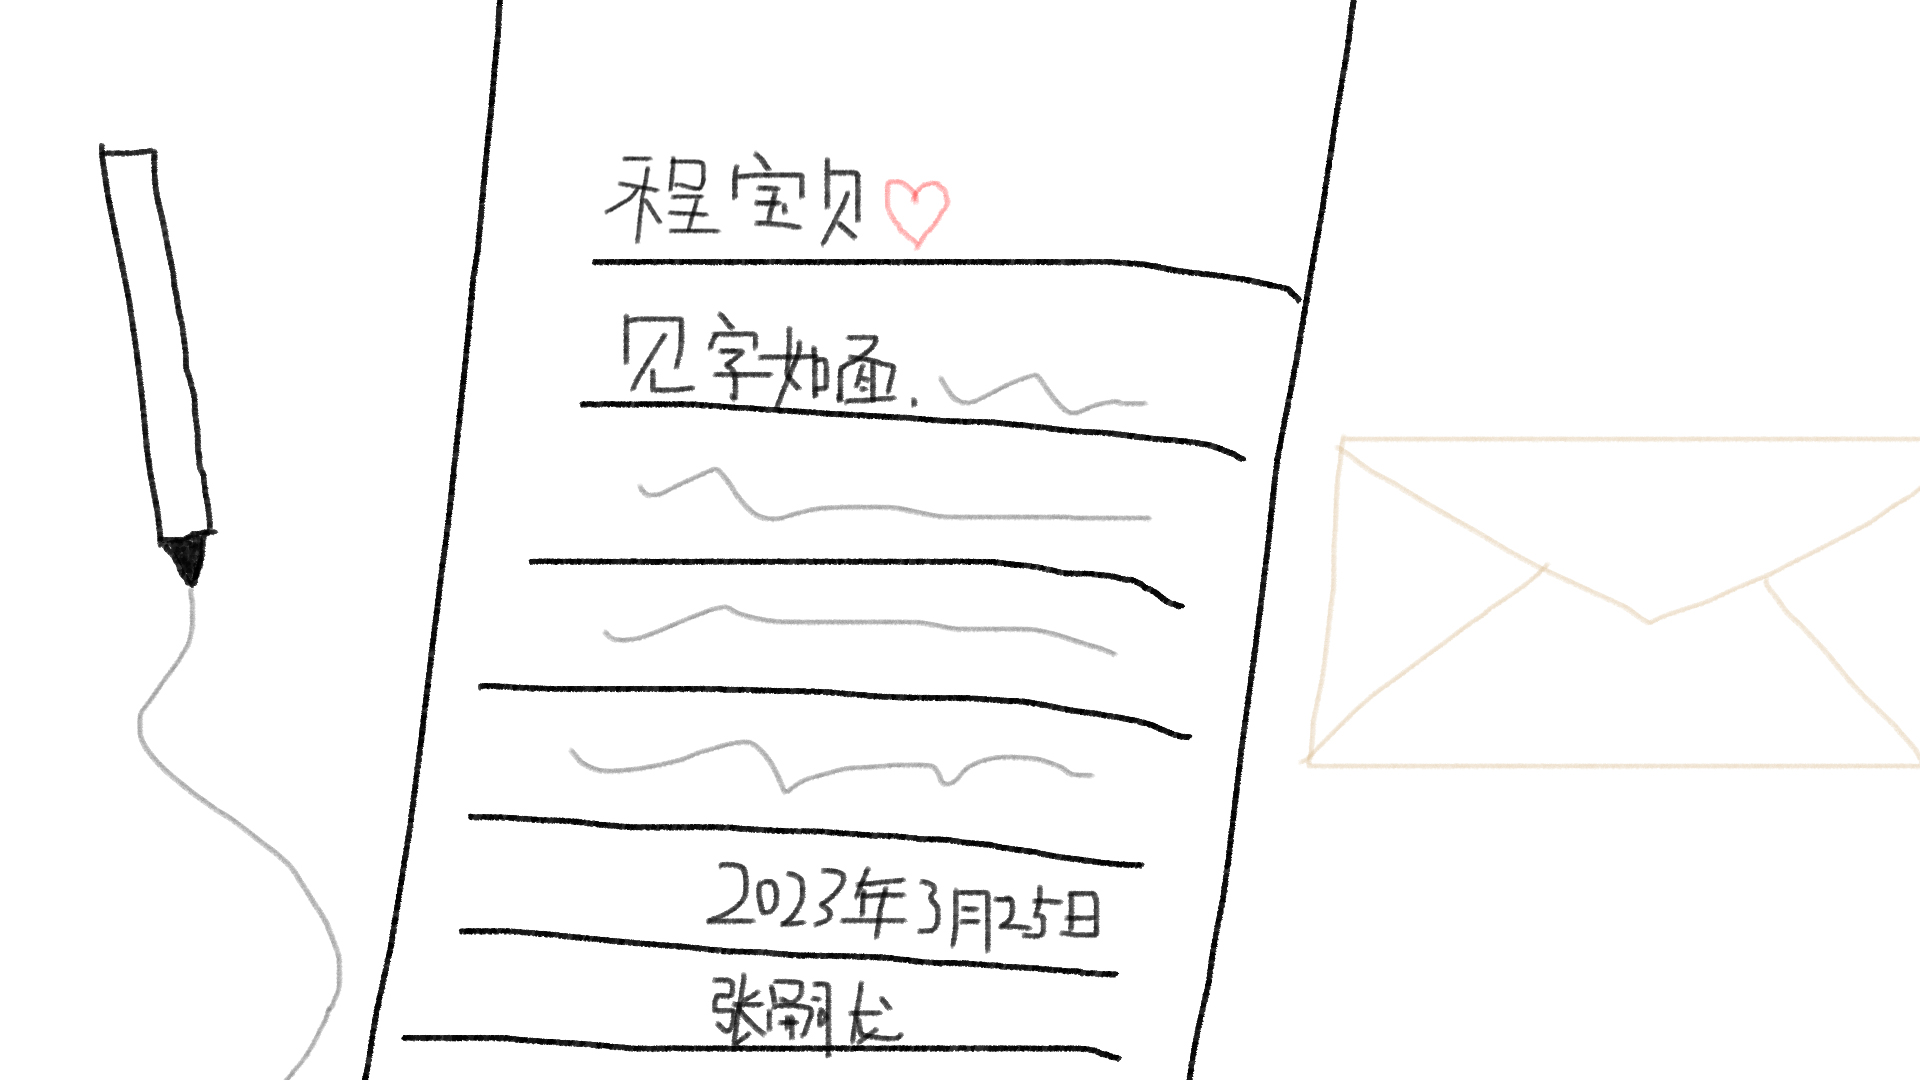 程宝贝
见字如面.
2023年3月25日
张嗣龙